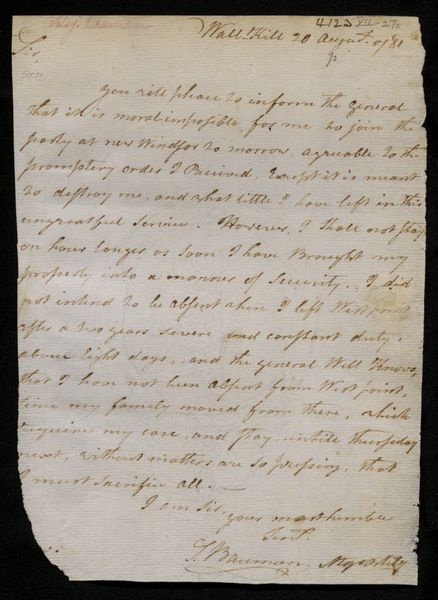 4123 VII-270
Wall.Kill 20 August. 1781
Sir
you will please to inform the general
that it is moral imposible, for me to join the
party at new Windsor to morrow, agreable to the
promptery order I Received, Except it is meant
to destroy me, and what little I have left in this
ungreatful Service. However, I shall not stay
an hour longer as soon I have Brought my
property into a manner of Security. I did
not intend to be absent when I left Westpoint
after a two years severe and constant duty,
above Eight days, and the general Well Knows,
that I have not been absent from Westpoint,
since my family moved from there, which
requires my care, and stay, untile thursday
next, without matters are so pressing, that
I must sacrifice all.
I am Sir,
your most humble
Servt.
S. Bauman, Major Arty